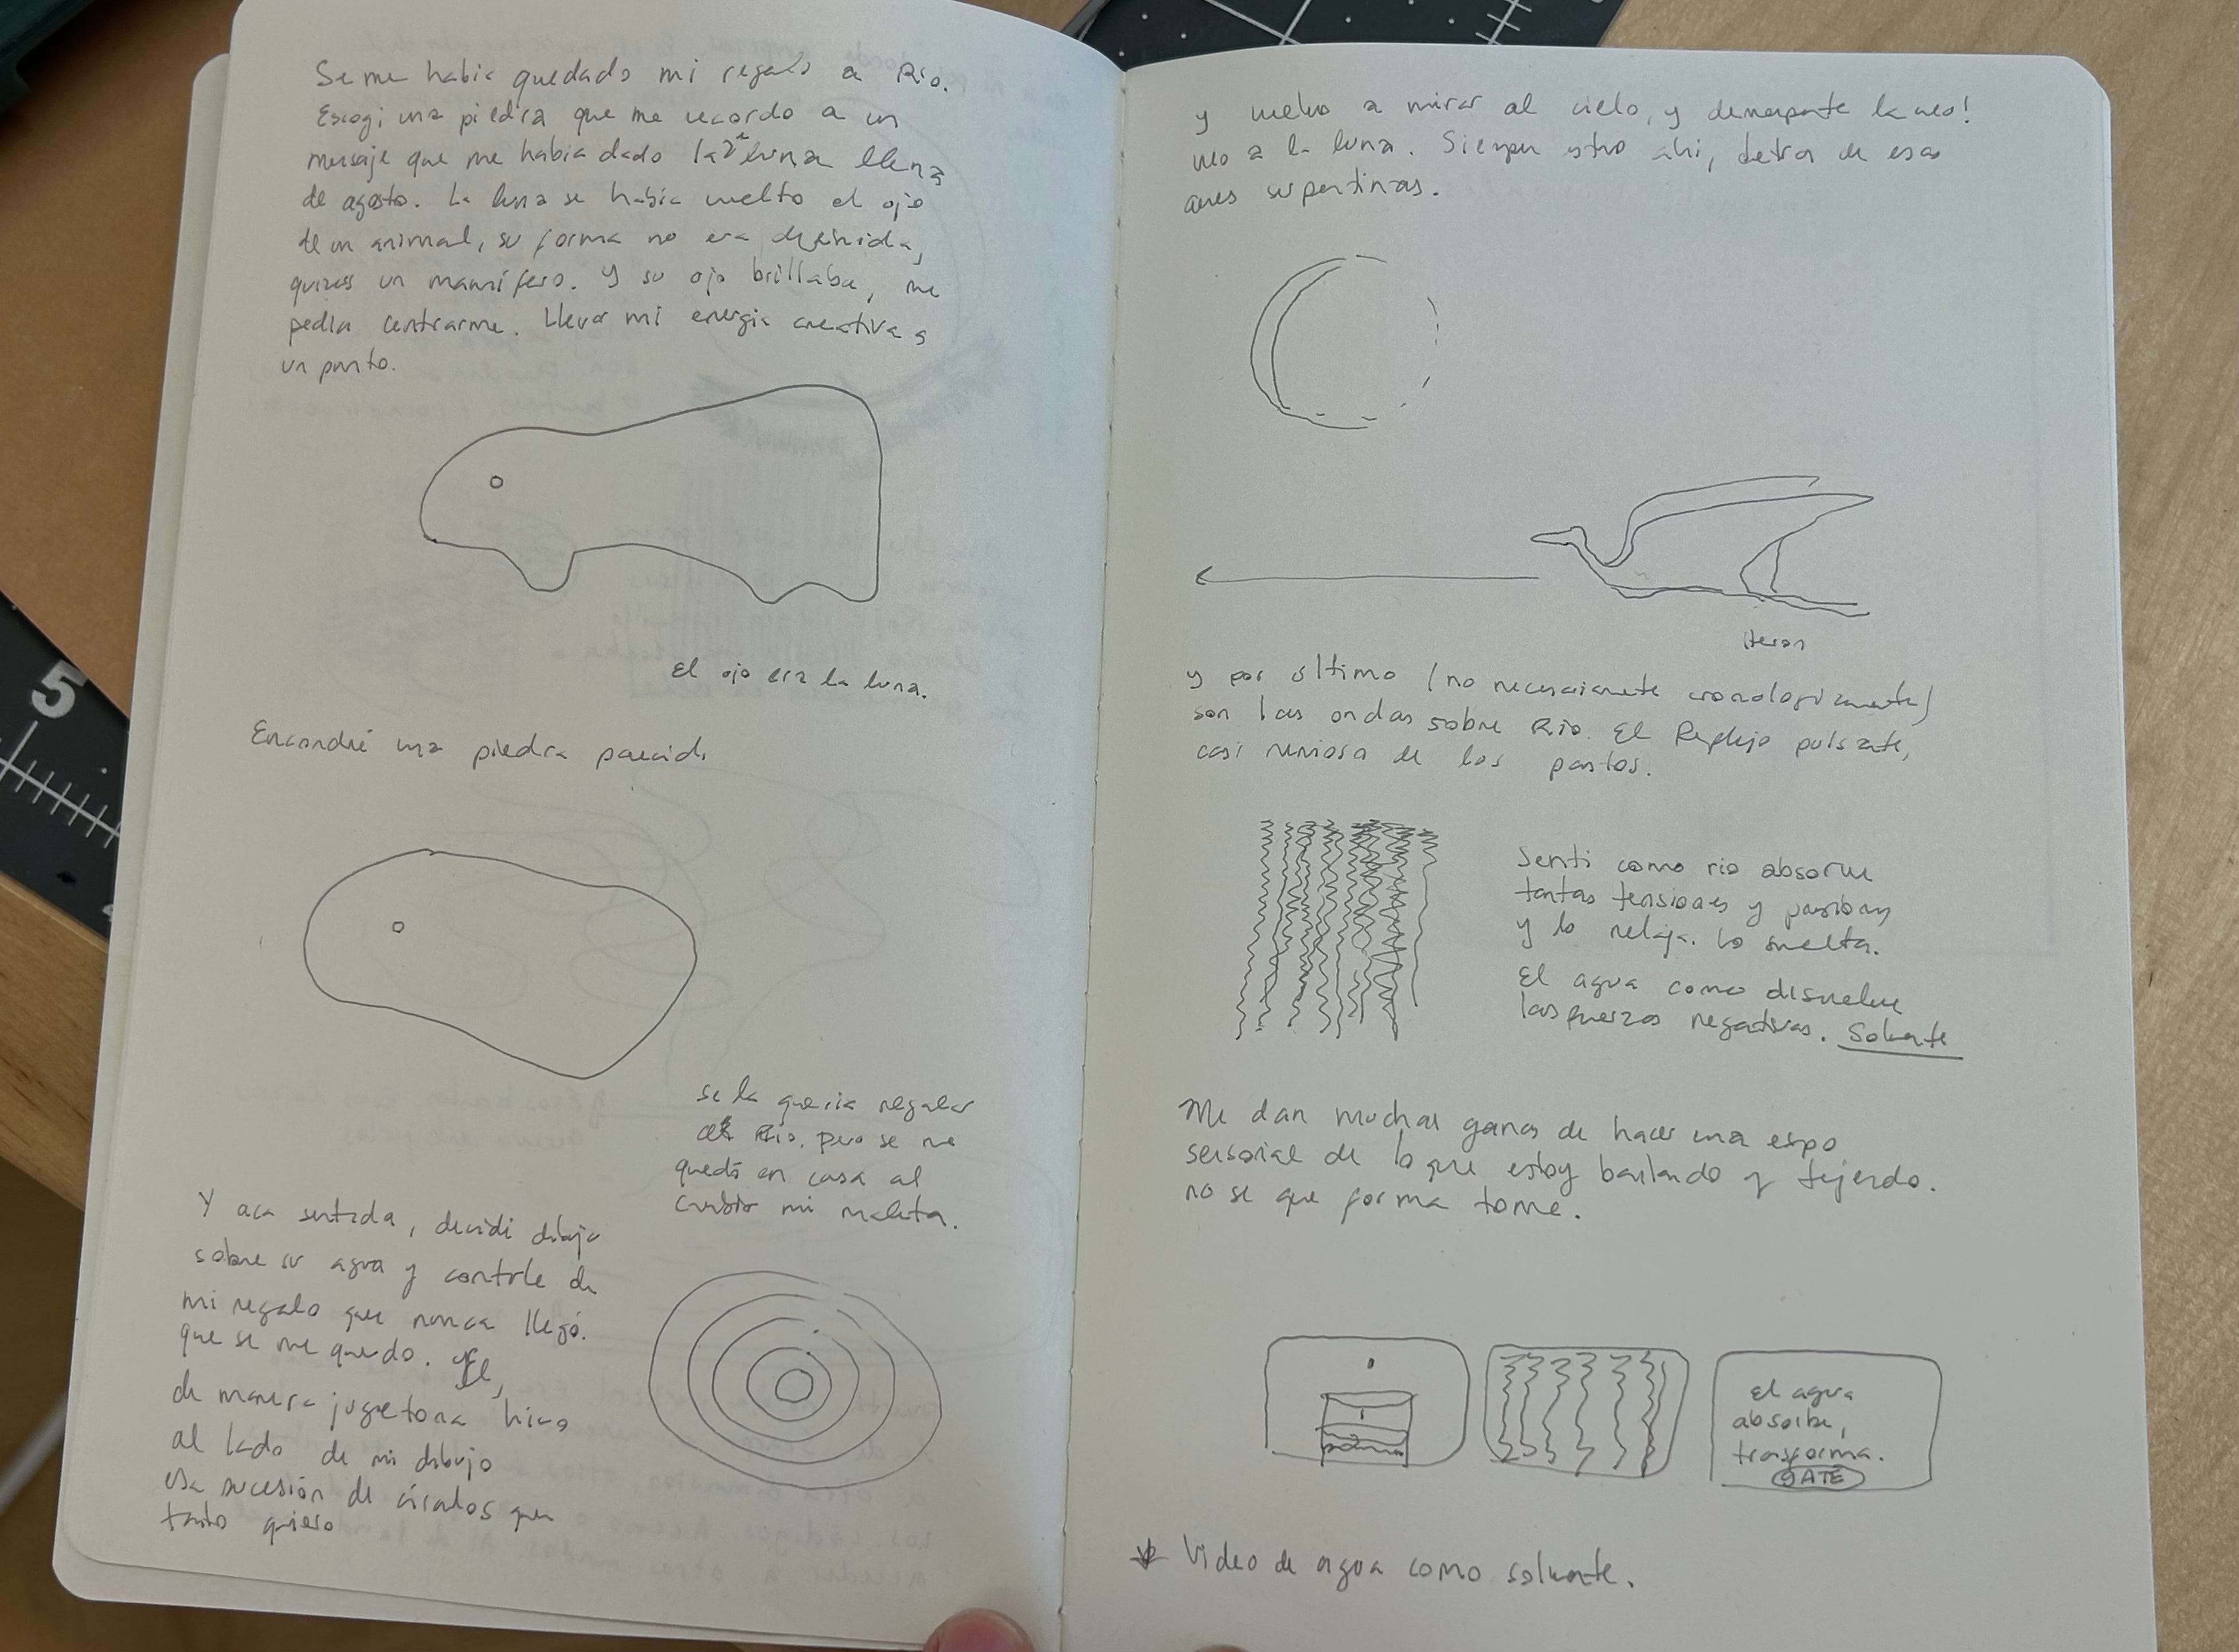 Se me había quedado mi regalo a Río.
Escogi una piedra que me recordo a un
mensaje que me habia dado la luna llena
de agosto. La luna se había vuelto el ojo
de un animal, su forma no era definida,
quizas un mamífero. Y su ojo brillaba, me
pedía centrarme. Llevar mi energia creativa a
un punto.
El ojo era la luna.
Encontré una piedra parecida
se la queria regalar
a Río. Pero se me
quedó en casa al
cambiar mi maleta.
Y aca sentada, decidi dibujar
sobre su agua y contarle de
mi regalo que nunca llegó.
que se me quedo. Y el,
de manera juguetona hizo
al lado de mi dibujo
esa sucesión de círculos que
tanto quiero
y vuelvo a mirar al cielo, y derrepente la veo!
veo a la luna. Siempre estuvo ahi, detras de esas
aves serpentinas.
Heron
y por último (no necesariamente cronologicamente)
son las ondas sobre Río. El Reflejo pulsante,
casi nervioso de los pastos.
Senti como rio absorve
tantas tensiones y
y lo relaja. Lo suelta.
El agua como disuelve
las fuerzas negativas. Solvente
Me dan muchas ganas de hacer una expo
sensorial de lo que estoy bailando y tejiendo.
no se que forma tome.
El agua
absorbe,
trasforma.
GATE
Video de agua como solvente.